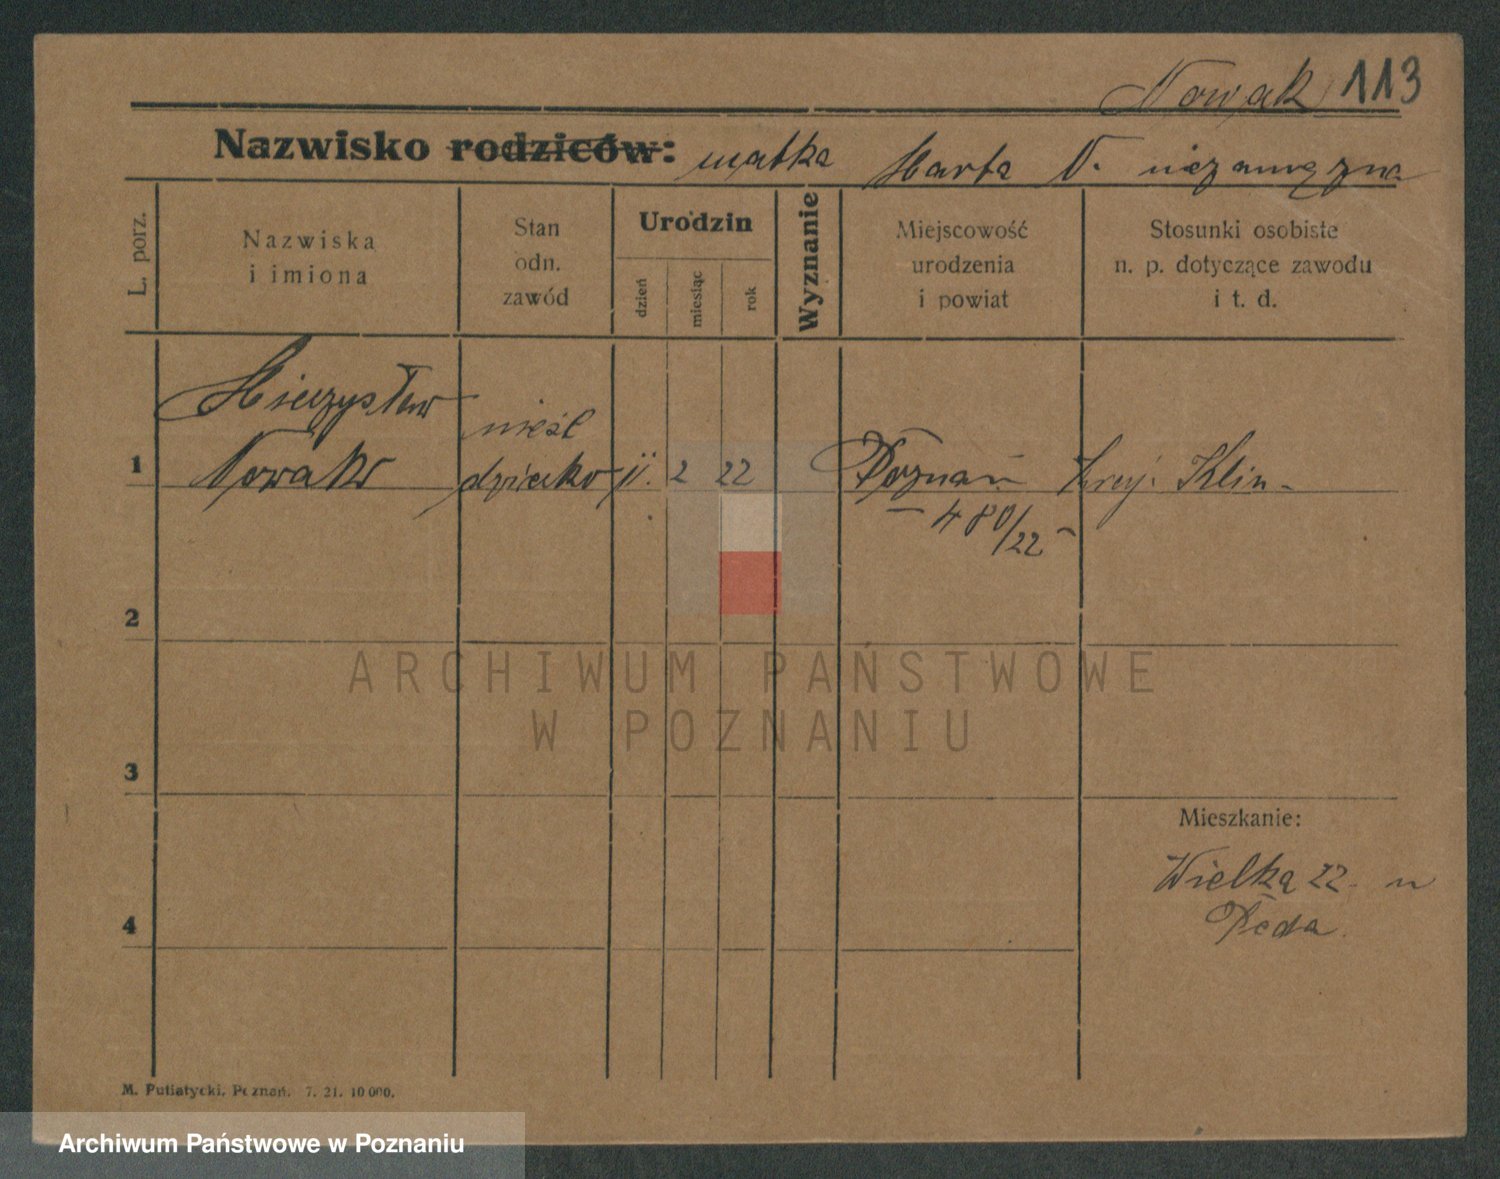 Nowak 113
Nazwisko rodziców: matka Marta N. niezamężna
L. porz.
Nazwiska
i imiona
Stan
odn.
zawód
Urodzin
dzień
miesiąc
rok
Wyznanie
Miejscowość
urodzenia
i powiat
Stosunki osobiste
n. p. dotyczące zawodu
i t. d.
Mieczysław
nieśl
1 Nowak dziecko 2 22 Poznań Klin-
480/22
2
ARCHIWUM PAŃSTWOWE
W POZNANIU
3
Mieszkanie:
Wielka 22 u
4
M. Putiatycki, Poznań. 7. 21. 10 000.
Archiwum Państwowe w Poznaniu